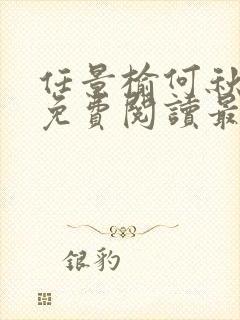 任景榆何秋
免費閱讀最
银豹